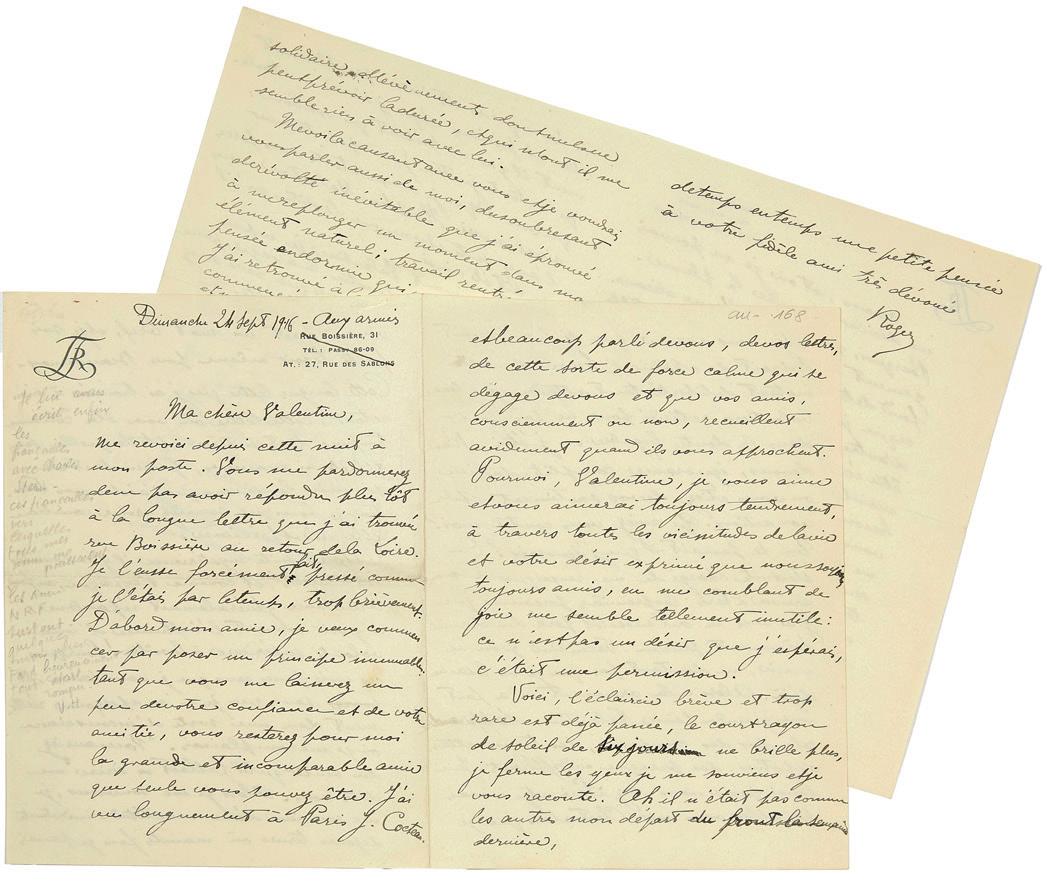 Dimanche 24 Sept 1916 - Aux armées
RUE BOISSIÈRE, 31
TÉL.: PASSY 86-09
AT.: 27, RUE DES SABLONS
Ma chère Valentine,
me revoici depuis cette nuit à
mon poste. Vous me pardonnerez
de ne pas avoir répondu plus tôt
à la longue lettre que j'ai trouvée
rue Boissière au retour de la Loire.
Je l'eusse forcément fait, pressé comme
je l'étais par le temps, trop brièvement.
D'abord mon amie, je veux commen
cer par poser un principe immuable:
tant que vous me laisserez un
peu de votre confiance et de votre
amitié, vous resterez pour moi
la grande et incomparable amie
que seule vous pouvez être. J'ai
vu longuement à Paris J. Cocteau
et beaucoup parlé de vous, de vos lettres,
de cette sorte de force calme qui se
dégage de vous et que vos amis,
consciemment ou non, recueillent
avidement quand ils vous approchent.
Pour moi, Valentine, je vous aime
et vous aimerai toujours tendrement,
à travers toutes les vicissitudes de la vie
et votre désir exprimé que nous soyons
toujours amis, en me comblant de
joie me semble tellement inutile:
ce n'est pas un désir que j'espérais,
c'était une permission.
Voici, l'éclaircie brève et trop
rare est déjà passée, le court rayon
de soleil de six jours ne brille plus,
je ferme les yeux je me souviens et je
vous raconte. Ah il n'était pas comme
les autres mon départ du front la semaine
dernière,
solidaire d'évènement dont nul ne
peut prévoir la durée, et qui n'ont il me
semble rien à voir avec lui.
Me voila causant avec vous et je voudrais
vous parler aussi de moi, du sombre instant
de révolte inévitable que j'ai éprouvé
à me replonger un moment dans mon
élément naturel; travail rentré
pensée endormie qui
J'ai retrouvé à l
commencé
de temps en temps une petite pensée
à votre fidèle ami très dévoué
Roger